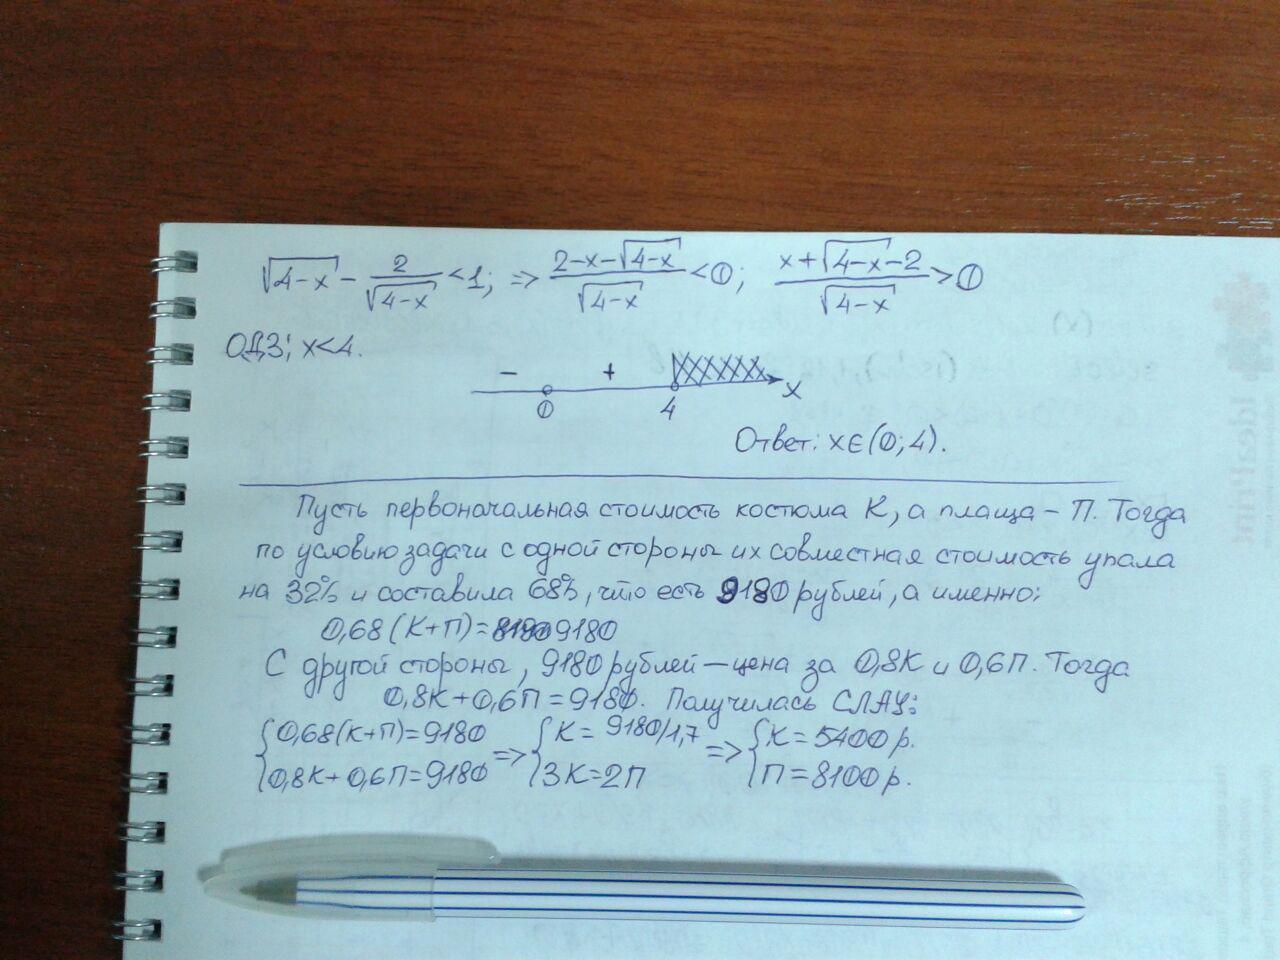 √(4-x) - 2/√(4-x) < 1; => (2-x-√(4-x))/√(4-x) < 0; (x+√(4-x)-2)/√(4-x) > 0
ОДЗ: x<4.
- + x
0 4
Ответ: x∈(0;4).
Пусть первоначальная стоимость костюма К, а плаща - П. Тогда
по условию задачи с одной стороны их совместная стоимость упала
на 32% и составила 68%, что есть 9180 рублей, а именно:
0,68(К+П)= 9180
С другой стороны, 9180 рублей — цена за 0,8К и 0,6П. Тогда
0,8К+0,6П=9180. Получилась СЛАУ:
{0,68(К+П)=9180 => {К= 9180/1,7 => {К=5400р.
{0,8К+0,6П=9180 {3К=2П {П=8100р.
IdealPrint